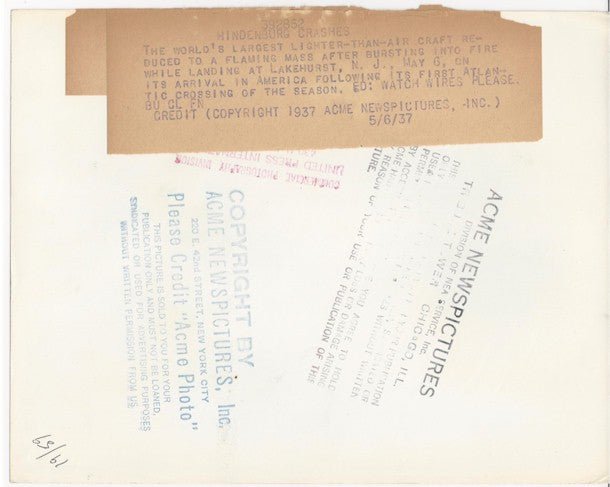 592852
HINDENBURG CRASHES
THE WORLD'S LARGEST LIGHTER-THAN-AIR CRAFT RE-
DUCED TO A FLAMING MASS AFTER BURSTING INTO FIRE
WHILE LANDING AT LAKEHURST, N. J., MAY 6, ON
ITS ARRIVAL IN AMERICA FOLLOWING ITS FIRST ATLAN-
TIC CROSSING OF THE SEASON. ED: WATCH WIRES PLEASE.
BU GL FN
CREDIT (COPYRIGHT 1937 ACME NEWSPICTURES, INC.)
5/6/37
COMMERCIAL PHOTOGRAPHY DIVISION
UNITED PRESS
COPYRIGHT BY
ACME NEWSPICTURES, Inc.
220 E. 42nd STREET, NEW YORK CITY
Please Credit "Acme Photo"
THIS PICTURE IS SOLD TO YOU FOR YOUR
PUBLICATION ONLY AND MUST NOT BE LOANED,
SYNDICATED OR USED FOR ADVERTISING PURPOSES
WITHOUT WRITTEN PERMISSION FROM US
ACME NEWSPICTURES
DIVISION OF NEA SERVICE, Inc.
CHICAGO, ILL.
YOU AGREE TO HOLD
REASON OF YOUR USE OR PUBLICATION OF THIS